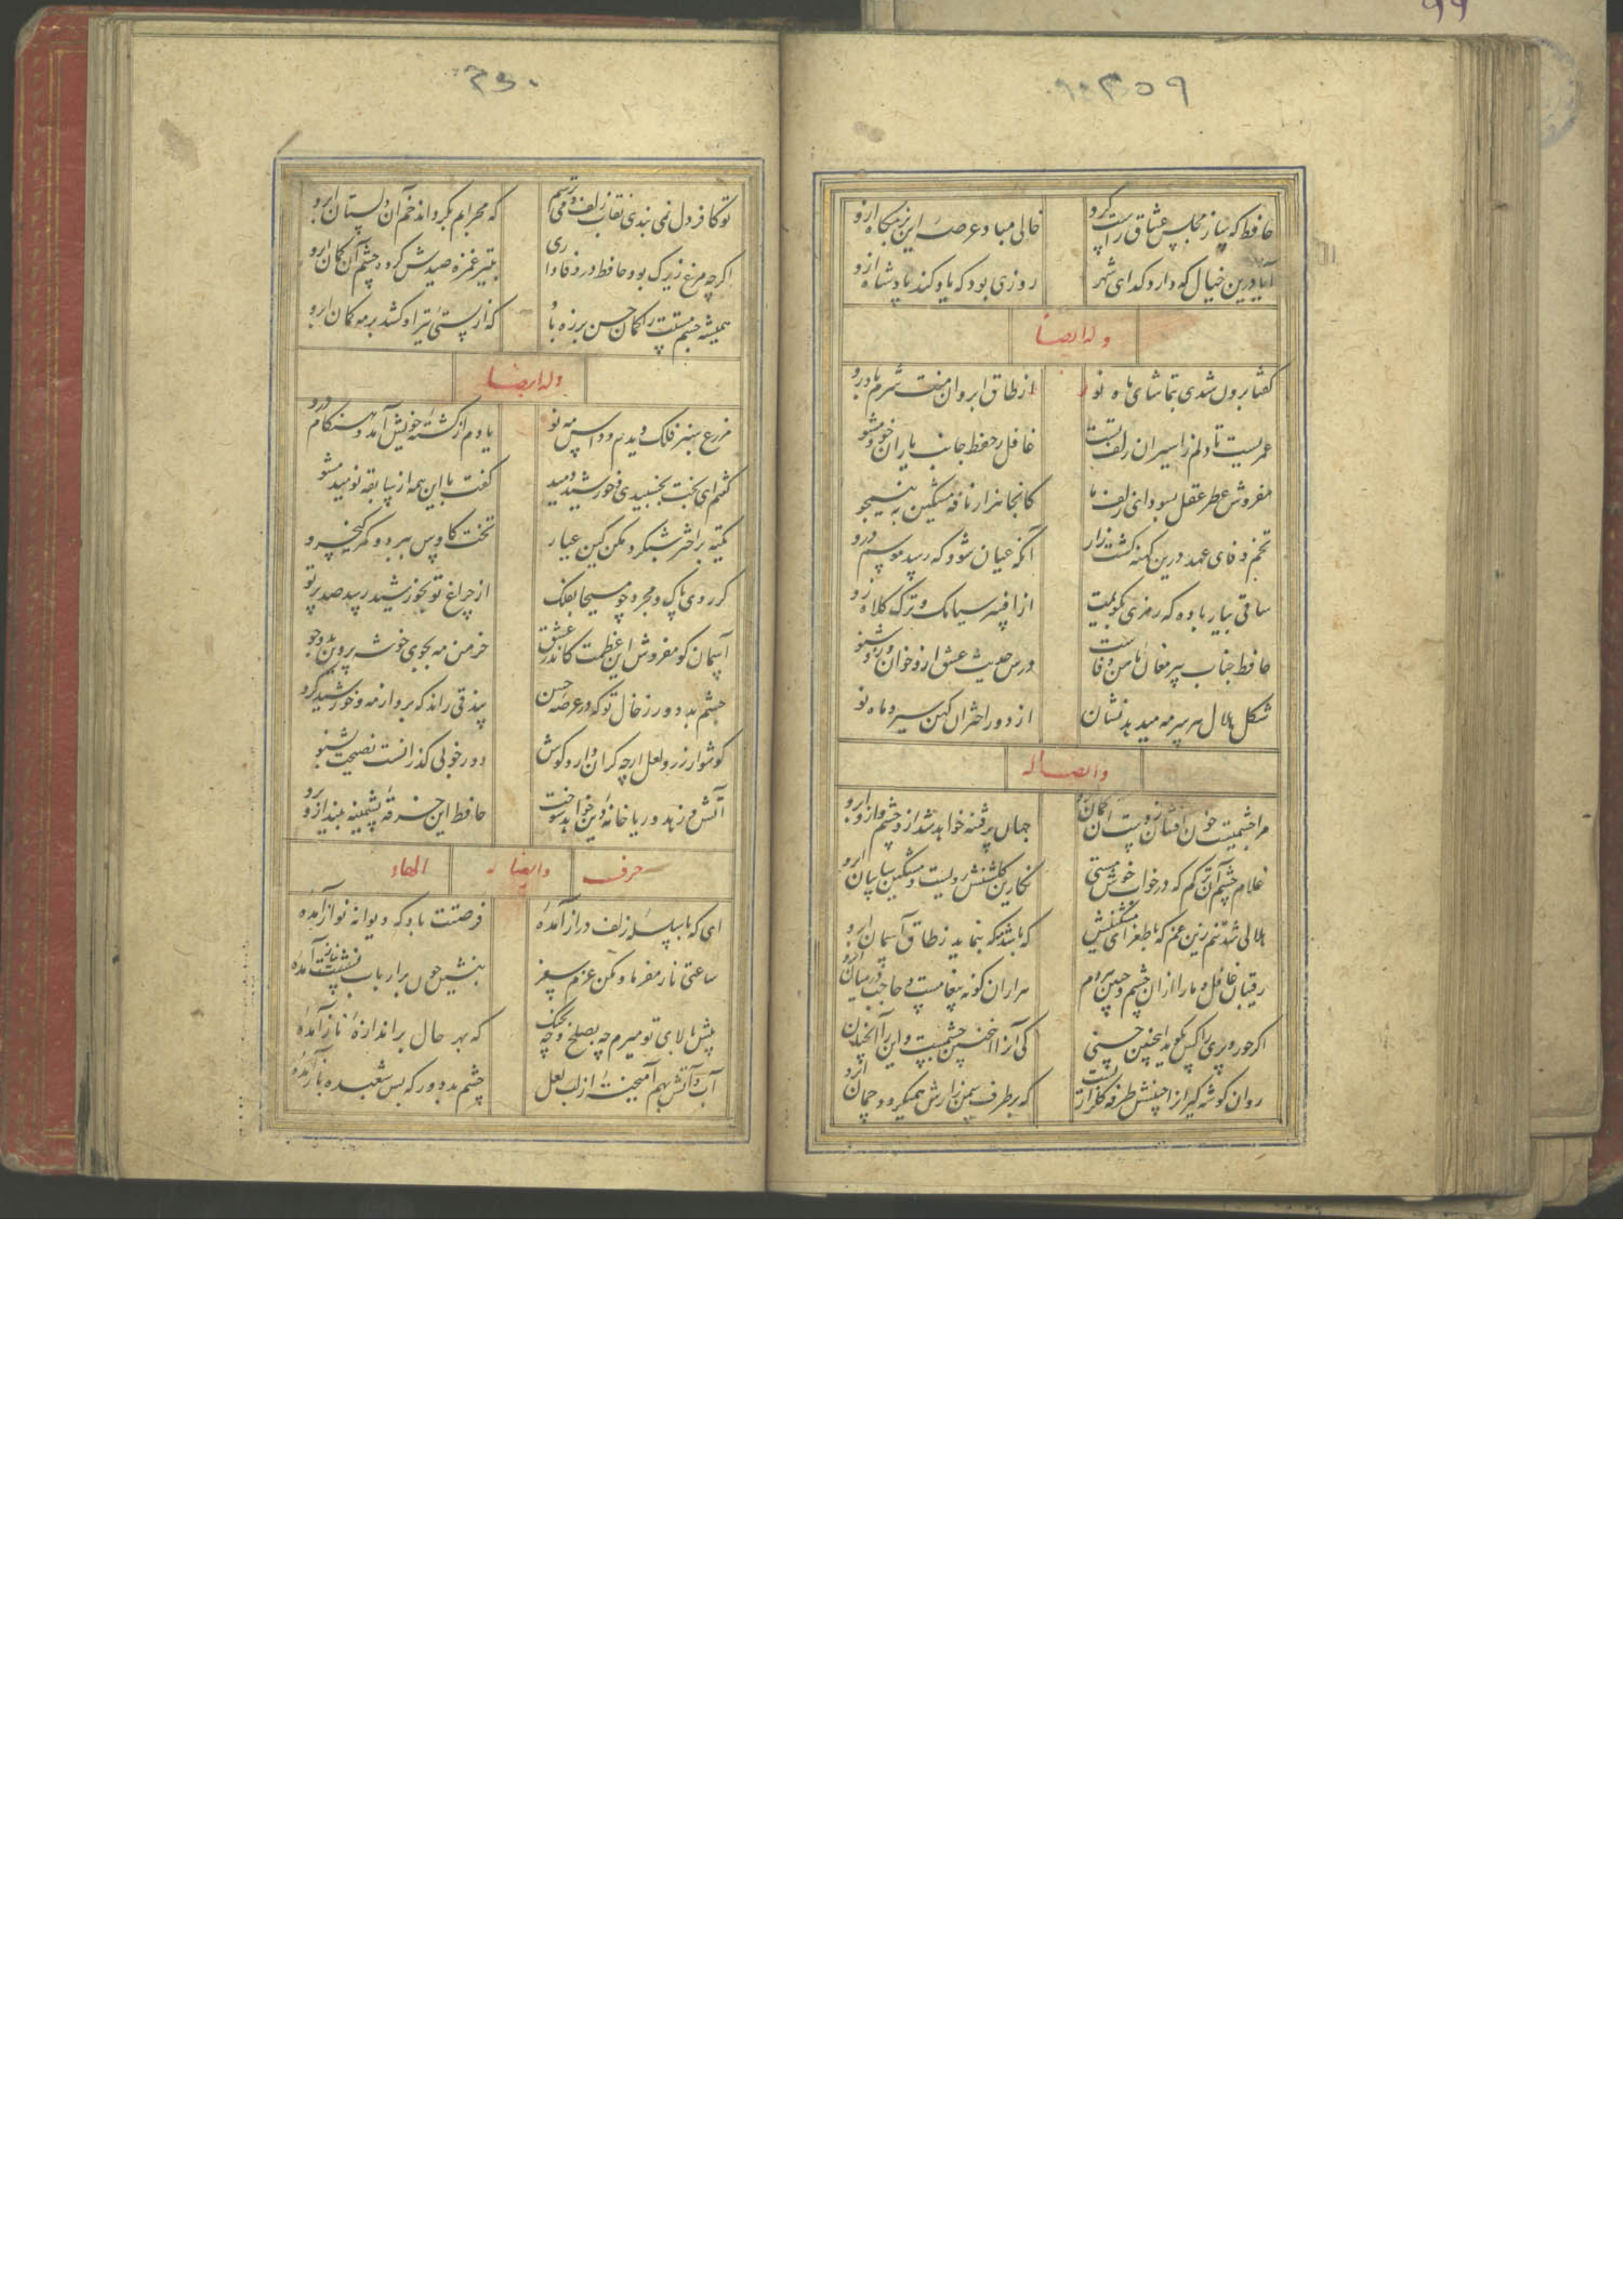 ۳۵۹
حافظ که ساز مجلس عشاق راست کرد خالی مباد عرصه این بزمگاه ازو
آیا درین خیال که دارد گدای شهر روزی بود که یاد کند پادشاه ازو
وله ایضا
گفتا برون شدی بتماشای ماه نو از طاق ابروان منت شرم باد رو
عمریست تا دلم ز اسیران زلف تست غافل ز حفظ جانب یاران خود مشو
مفروش عطر عقل بسودای زلف ما کانجا هزار نافه مشکین به نیمجو
تخم وفای عهد درین کهنه کشت زار آنگه عیان شود که رسد موسم درو
ساقی بیار باده که رمزی بگویمت از افسر سیامک و ترک کلاه زو
حافظ جناب پیر مغان مامن وفاست درس حدیث عشق ازو خوان و زو شنو
شکل هلال هر سر مه میدهد نشان از دور اختران کهن سیر و ماه نو
وایضا له
مرا چشمیست خون افشان ز دست آن کمان ابرو جهان پر فتنه خواهد شد از آن چشم و از آن ابرو
غلام چشم آن ترکم که در خواب خوش مستی نگارین گلشنش رویست و مشکین سایبان ابرو
هلالی شد تنم زین غم که با طغرای مشکینش که باشد مه که بنماید ز طاق آسمان ابرو
رقیبان غافل و ما را از آن چشم و جبین هر دم هزاران گونه پیغامست و حاجب در میان ابرو
اگر حور و پری را کس بگوید اینچنین حسنی که آن را اینچنین چشمیست و این را آنچنان ابرو
روان گوشه گیران را جبینش طرفه گلزاریست که بر طرف سمن زارش همیگردد چمان ابرو
۳۶۰
تو کافر دل نمی بندی نقاب زلف و میترسم که محرابم بگرداند خم آن دلستان ابرو
اگرچه مرغ زیرک بود حافظ در وفاداری بتیر غمزه صیدش کرد چشم آن کمان ابرو
همیشه چشم مستت را کمان حسن بر زه باد که از پستی تیر او کشد بر مه کمان ابرو
وله ایضا
مزرع سبز فلک دیدم و داس مه نو یادم از کشته خویش آمد و هنگام درو
گفتم ای بخت بخسبیدی و خورشید دمید گفت با این همه از سابقه نومید مشو
تکیه بر اختر شبگرد مکن کین عیار تخت کاوس ببرد و کمر کیخسرو
گر روی پاک و مجرد چو مسیحا بفلک از چراغ تو بخورشید رسد صد پرتو
آسمان گو مفروش این عظمت کاندر عشق خرمن مه بجوی خوشه پروین بدو جو
چشم بد دور ز خال تو که در عرصه حسن بیذقی راند که برد از مه و خورشید گرو
گوشوار زر و لعل ارچه گران دارد گوش دور خوبی گذرانست نصیحت بشنو
آتش زهد و ریا خانه دین خواهد سوخت حافظ این خرقه پشمینه بینداز و برو
حرف وایضا له الهاء
ای که با سلسله زلف دراز آمده فرصتت باد که دیوانه نواز آمده
ساعتی ناز مفرما و مکن عزم سفر
پیش بالای تو میرم چه بصلح و چه بجنگ که بهر حال برازنده ناز آمده
آب و آتش بهم آمیخته از لب لعل چشم بد دور که بس شعبده باز آمده